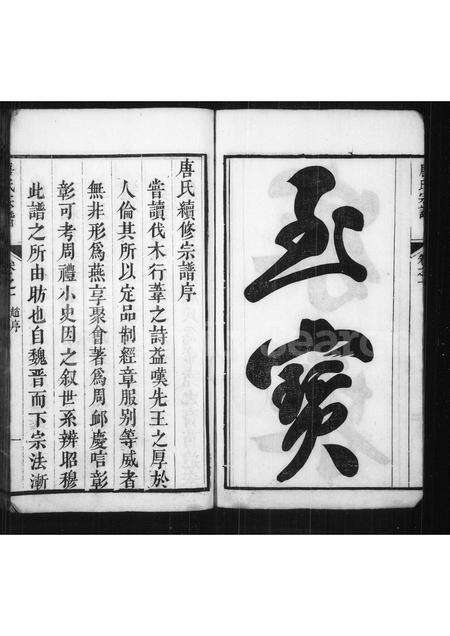 唐氏宗譜
至寶
唐氏續修宗譜序
嘗讀伐木行葦之詩益嘆先王之厚於
人倫其所以定品制經章服别等威者
無非形為燕享聚會著為周䘏慶唁彰
彰可考周禮小史因之叙世系辨昭穆
此譜之所由昉也自魏晉而下宗法漸
唐氏宗譜
卷之一
一